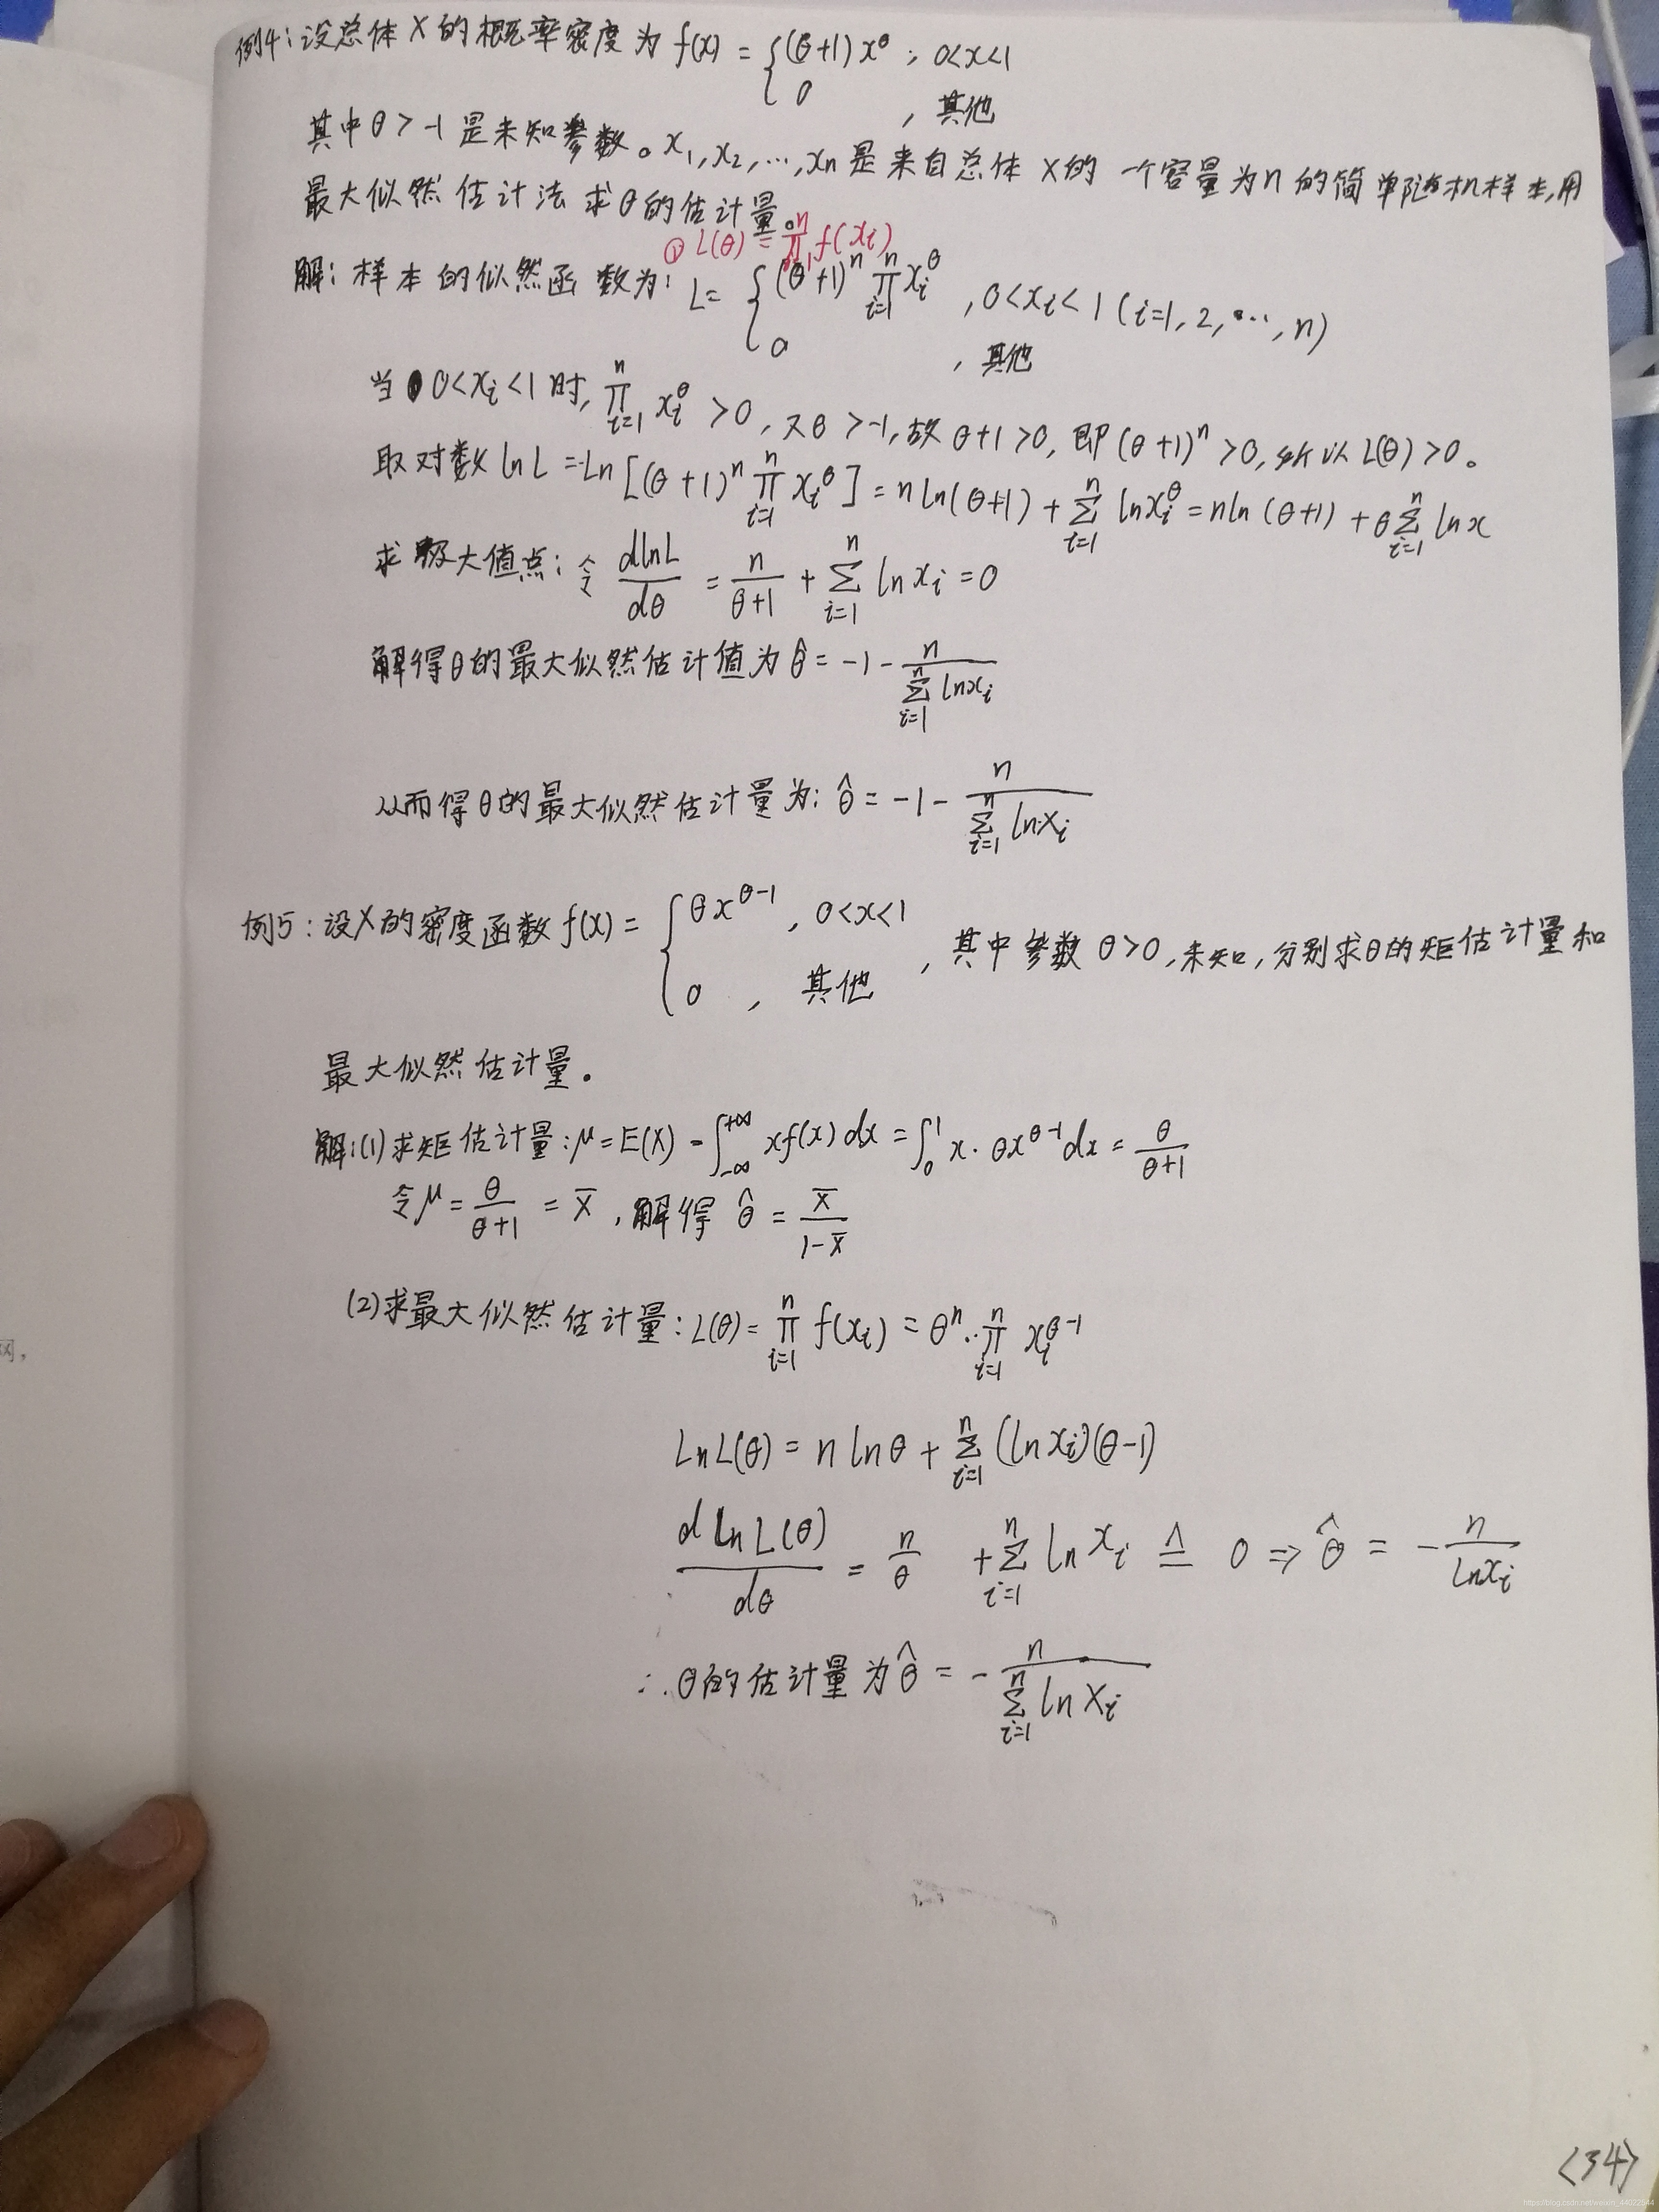 例4:设总体X的概率密度为 f(x) = { (θ+1)x^θ , 0<x<1
0 , 其他
其中θ>-1是未知参数。x₁,x₂,…,xn是来自总体X的一个容量为n的简单随机样本,用
最大似然估计法求θ的估计量。
① L(θ) = ∏_{i=1}^{n} f(xi)
解:样本的似然函数为: L= { (θ+1)^n ∏_{i=1}^{n} xi^θ , 0<xi<1 (i=1,2,…,n)
0 , 其他
当 0<xi<1时, ∏_{i=1}^{n} xi^θ >0, 又θ>-1,故θ+1>0, 即(θ+1)^n>0,所以L(θ)>0。
取对数 ln L = Ln[(θ+1)^n ∏_{i=1}^{n} xi^θ] = n ln(θ+1) + ∑_{i=1}^{n} lnxi^θ = nln(θ+1) + θ∑_{i=1}^{n} lnx
求极大值点: 令 dlnL/dθ = n/(θ+1) + ∑_{i=1}^{n} ln xi = 0
解得θ的最大似然估计值为 θ̂ = -1 - n/(∑_{i=1}^{n} lnxi)
从而得θ的最大似然估计量为: θ̂ = -1 - n/(∑_{i=1}^{n} lnXi)
例5:设X的密度函数 f(x) = { θx^{θ-1} , 0<x<1
0 , 其他 , 其中参数θ>0,未知,分别求θ的矩估计量和
最大似然估计量。
解:(1)求矩估计量: μ=E(X) = ∫_{-∞}^{+∞} xf(x)dx = ∫_0^1 x·θx^{θ-1}dx = θ/(θ+1)
令μ = θ/(θ+1) = X̄ , 解得 θ̂ = X̄/(1-X̄)
(2)求最大似然估计量: L(θ) = ∏_{i=1}^{n} f(xi) = θ^n·∏_{i=1}^{n} xi^{θ-1}
LnL(θ) = n lnθ + ∑_{i=1}^{n} (ln xi)(θ-1)
d Ln L(θ)/dθ = n/θ + ∑_{i=1}^{n} ln xi ≙ 0 ⇒ θ̂ = - n/lnxi
∴ θ的估计量为 θ̂ = - n/(∑_{i=1}^{n} ln Xi)
网,
<34>